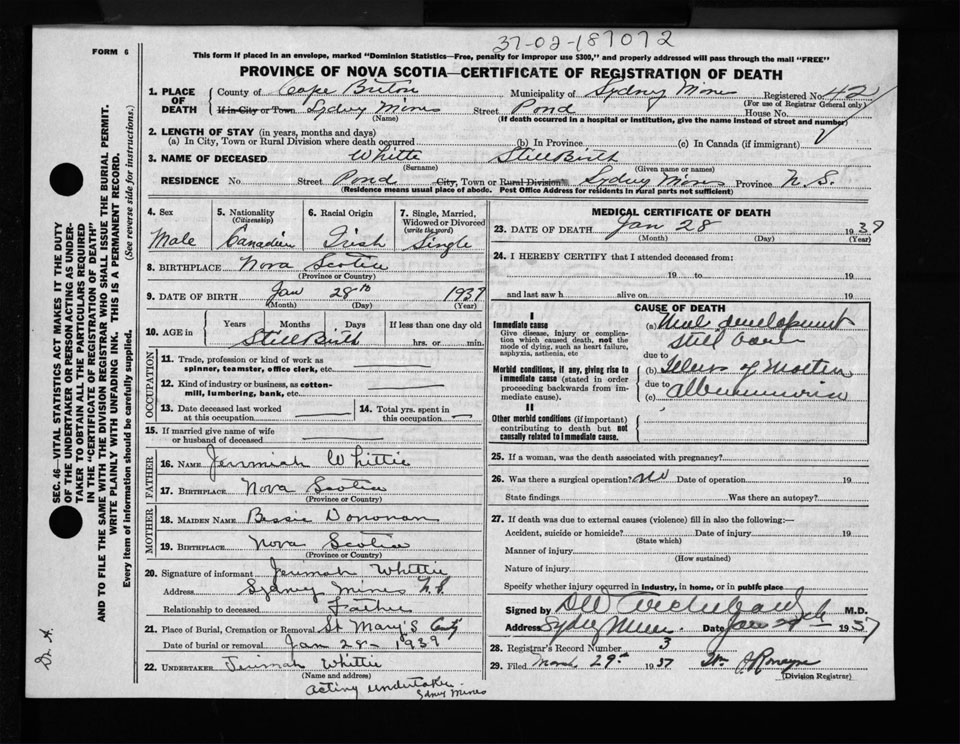 37-02-187072
FORM 6
This form if placed in an envelope, marked "Dominion Statistics—Free, penalty for improper use $300," and properly addressed will pass through the mail "FREE"
PROVINCE OF NOVA SCOTIA—CERTIFICATE OF REGISTRATION OF DEATH
1. PLACE OF DEATH
County of Cape Breton Municipality of Sydney Mines Registered No. 42
(For use of Registrar General only)
If in City or Town Sydney Mines Street Pond House No.
(Name) (If death occurred in a hospital or institution, give the name instead of street and number)
2. LENGTH OF STAY (in years, months and days)
(a) In City, Town or Rural Division where death occurred (b) In Province (c) In Canada (if immigrant)
3. NAME OF DECEASED Whitti Still Birth
(Surname) (Given name or names)
RESIDENCE No. Street Pond City, Town or Rural Division Sydney Mines Province N.S.
(Residence means usual place of abode. Post Office Address for residents in rural parts not sufficient)
4. Sex Male
5. Nationality (Citizenship) Canadian
6. Racial Origin Irish
7. Single, Married, Widowed or Divorced (write the word) Single
8. BIRTHPLACE Nova Scotia
(Province or Country)
9. DATE OF BIRTH Jan 28th 1937
(Month) (Day) (Year)
10. AGE in Years Months Days If less than one day old
Still Birth hrs. or min.
OCCUPATION
11. Trade, profession or kind of work as spinner, teamster, office clerk, etc.
12. Kind of industry or business, as cotton-mill, lumbering, bank, etc.
13. Date deceased last worked at this occupation
14. Total yrs. spent in this occupation
15. If married give name of wife or husband of deceased
FATHER
16. NAME Jerimiah Whittie
17. BIRTHPLACE Nova Scotia
(Province or Country)
MOTHER
18. MAIDEN NAME Bessie Donovan
19. BIRTHPLACE Nova Scotia
(Province or Country)
20. Signature of informant Jerimah Whittie
Address Sydney Mines N.S.
Relationship to deceased Father
21. Place of Burial, Cremation or Removal St Mary's
Date of burial or removal Jan 28 - 1939
22. UNDERTAKER Jerimah Whittie
(Name and address)
acting undertaker
Sydney Mines
MEDICAL CERTIFICATE OF DEATH
23. DATE OF DEATH Jan 28 1937
(Month) (Day) (Year)
24. I HEREBY CERTIFY that I attended deceased from:
19 to 19
and last saw h alive on 19
CAUSE OF DEATH
I
Immediate cause
Give disease, injury or complication which caused death, not the mode of dying, such as heart failure, asphyxia, asthenia, etc
(a) development
Still born
due to
Morbid conditions, if any, giving rise to immediate cause (stated in order proceeding backwards from immediate cause).
(b) Illness of Mother
due to
(c) Albuminuria
II
Other morbid conditions (if important) contributing to death but not causally related to immediate cause.
25. If a woman, was the death associated with pregnancy?
26. Was there a surgical operation? no Date of operation 19
State findings Was there an autopsy?
27. If death was due to external causes (violence) fill in also the following:—
Accident, suicide or homicide? Date of injury 19
(State which)
Manner of injury
(How sustained)
Nature of injury
Specify whether injury occurred in industry, in home, or in public place
Signed by M.D.
Address Sydney Mines Date 1937
28. Registrar's Record Number 3
29. Filed March 29th 1937 J Romayne
(Division Registrar)
SEC. 46—VITAL STATISTICS ACT MAKES IT THE DUTY
OF THE UNDERTAKER OR PERSON ACTING AS UNDER-
TAKER TO OBTAIN ALL THE PARTICULARS REQUIRED
IN THE "CERTIFICATE OF REGISTRATION OF DEATH"
AND TO FILE THE SAME WITH THE DIVISION REGISTRAR WHO SHALL ISSUE THE BURIAL PERMIT.
WRITE PLAINLY WITH UNFADING INK. THIS IS A PERMANENT RECORD.
Every item of information should be carefully supplied. (See reverse side for instructions.)